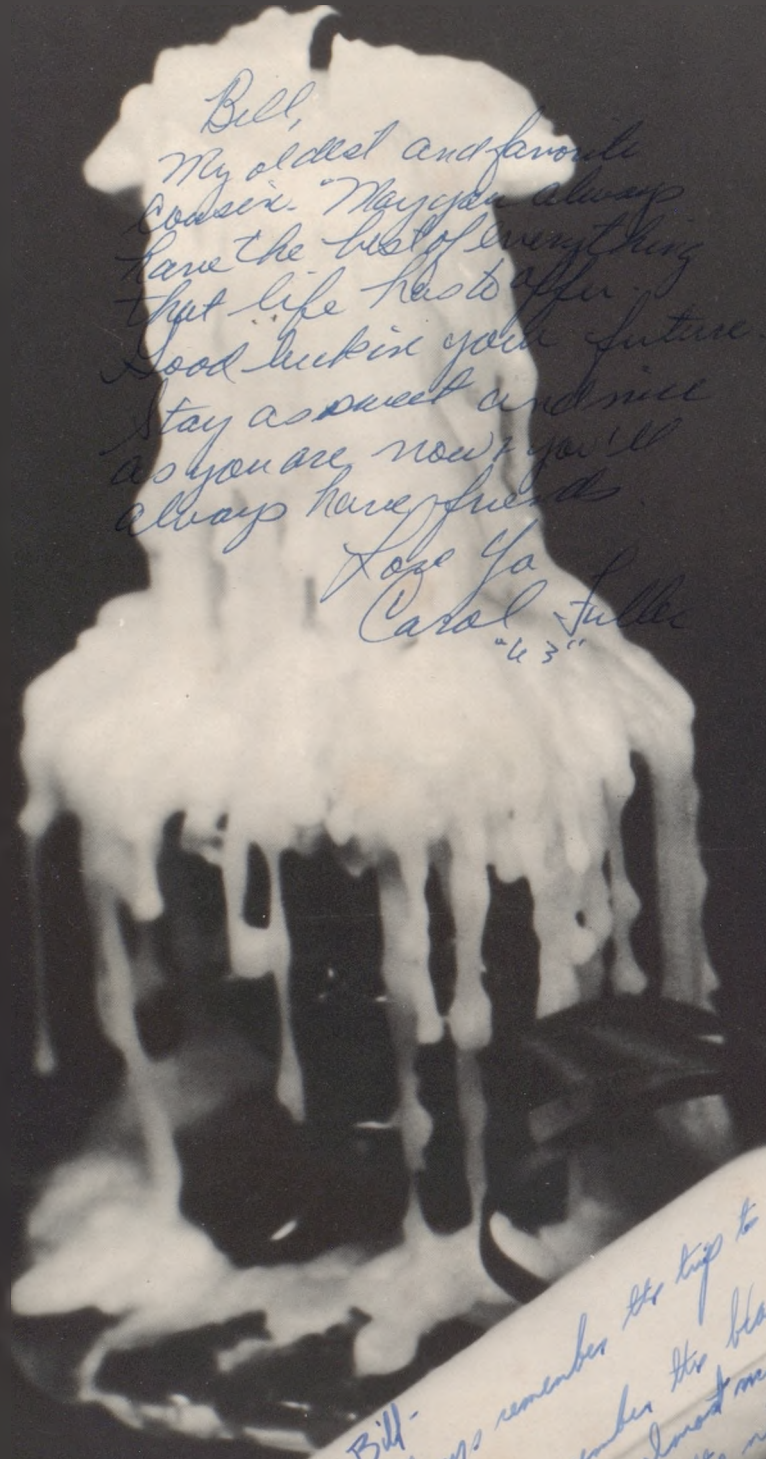 Bill,
My oldest and favorite
Cousin. "May you always
have the best of everything
that life has to offer.
Good luck in your future.
Stay as sweet and nice
as you are now & you'll
always have friends.
Love Ya
Carol Fuller
"63"
Bill-
remember the trip to
the
almost